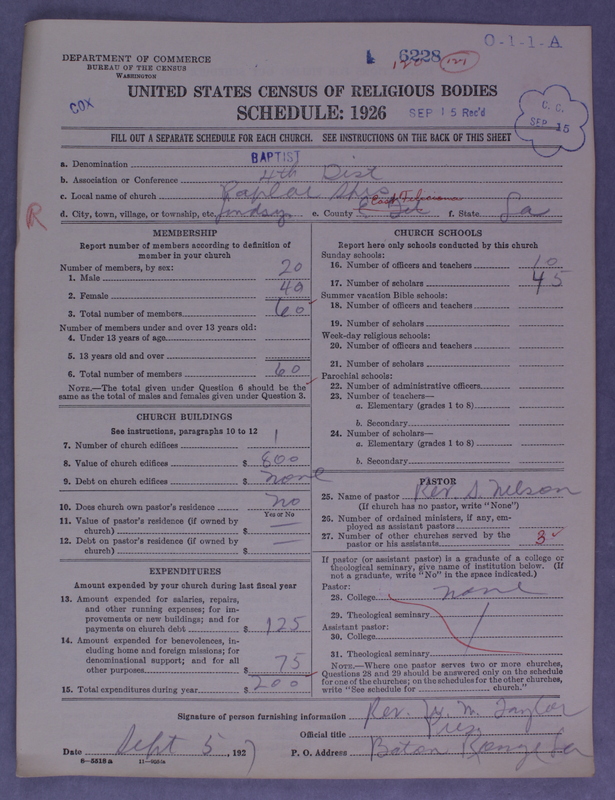 O-1-1-A
DEPARTMENT OF COMMERCE
BUREAU OF THE CENSUS
WASHINGTON
6228
COX
UNITED STATES CENSUS OF RELIGIOUS BODIES
SCHEDULE: 1926
SEP 15 Rec'd
C. C.
SEP 15
FILL OUT A SEPARATE SCHEDULE FOR EACH CHURCH. SEE INSTRUCTIONS ON THE BACK OF THIS SHEET
a. Denomination BAPTIST
b. Association or Conference 4th Dist
c. Local name of church
East Feliciana
d. City, town, village, or township, etc. Lindsy e. County f. State La
R
MEMBERSHIP
Report number of members according to definition of
member in your church
Number of members, by sex:
1. Male 20
2. Female 40
3. Total number of members 60
Number of members under and over 13 years old:
4. Under 13 years of age
5. 13 years old and over
6. Total number of members 60
NOTE.—The total given under Question 6 should be the
same as the total of males and females given under Question 3.
CHURCH BUILDINGS
See instructions, paragraphs 10 to 12
7. Number of church edifices 1
8. Value of church edifices $ 800
9. Debt on church edifices $ none
10. Does church own pastor's residence no
Yes or No
11. Value of pastor's residence (if owned by
church) $ —
12. Debt on pastor's residence (if owned by
church) $ —
EXPENDITURES
Amount expended by your church during last fiscal year
13. Amount expended for salaries, repairs,
and other running expenses; for im-
provements or new buildings; and for
payments on church debt $ 125
14. Amount expended for benevolences, in-
cluding home and foreign missions; for
denominational support; and for all
other purposes $ 75
15. Total expenditures during year $ 200
CHURCH SCHOOLS
Report here only schools conducted by this church
Sunday schools:
16. Number of officers and teachers 10
17. Number of scholars 45
Summer vacation Bible schools:
18. Number of officers and teachers
19. Number of scholars
Week-day religious schools:
20. Number of officers and teachers
21. Number of scholars
Parochial schools:
22. Number of administrative officers
23. Number of teachers—
a. Elementary (grades 1 to 8)
b. Secondary
24. Number of scholars—
a. Elementary (grades 1 to 8)
b. Secondary
PASTOR
25. Name of pastor Rev. S. Nelson
(If church has no pastor, write "None")
26. Number of ordained ministers, if any, em-
ployed as assistant pastors
27. Number of other churches served by the
pastor or his assistants 3
If pastor (or assistant pastor) is a graduate of a college or
theological seminary, give name of institution below. (If
not a graduate, write "No" in the space indicated.)
Pastor:
28. College none
29. Theological seminary
Assistant pastor:
30. College
31. Theological seminary
NOTE.—Where one pastor serves two or more churches,
Questions 28 and 29 should be answered only on the schedule
for one of the churches; on the schedules for the other churches,
write "See schedule for church."
Signature of person furnishing information Rev. W. M. Taylor
Official title Pres
Date Sept 5, 1927 P. O. Address Baton Rouge La
8—5318a 11—9051a